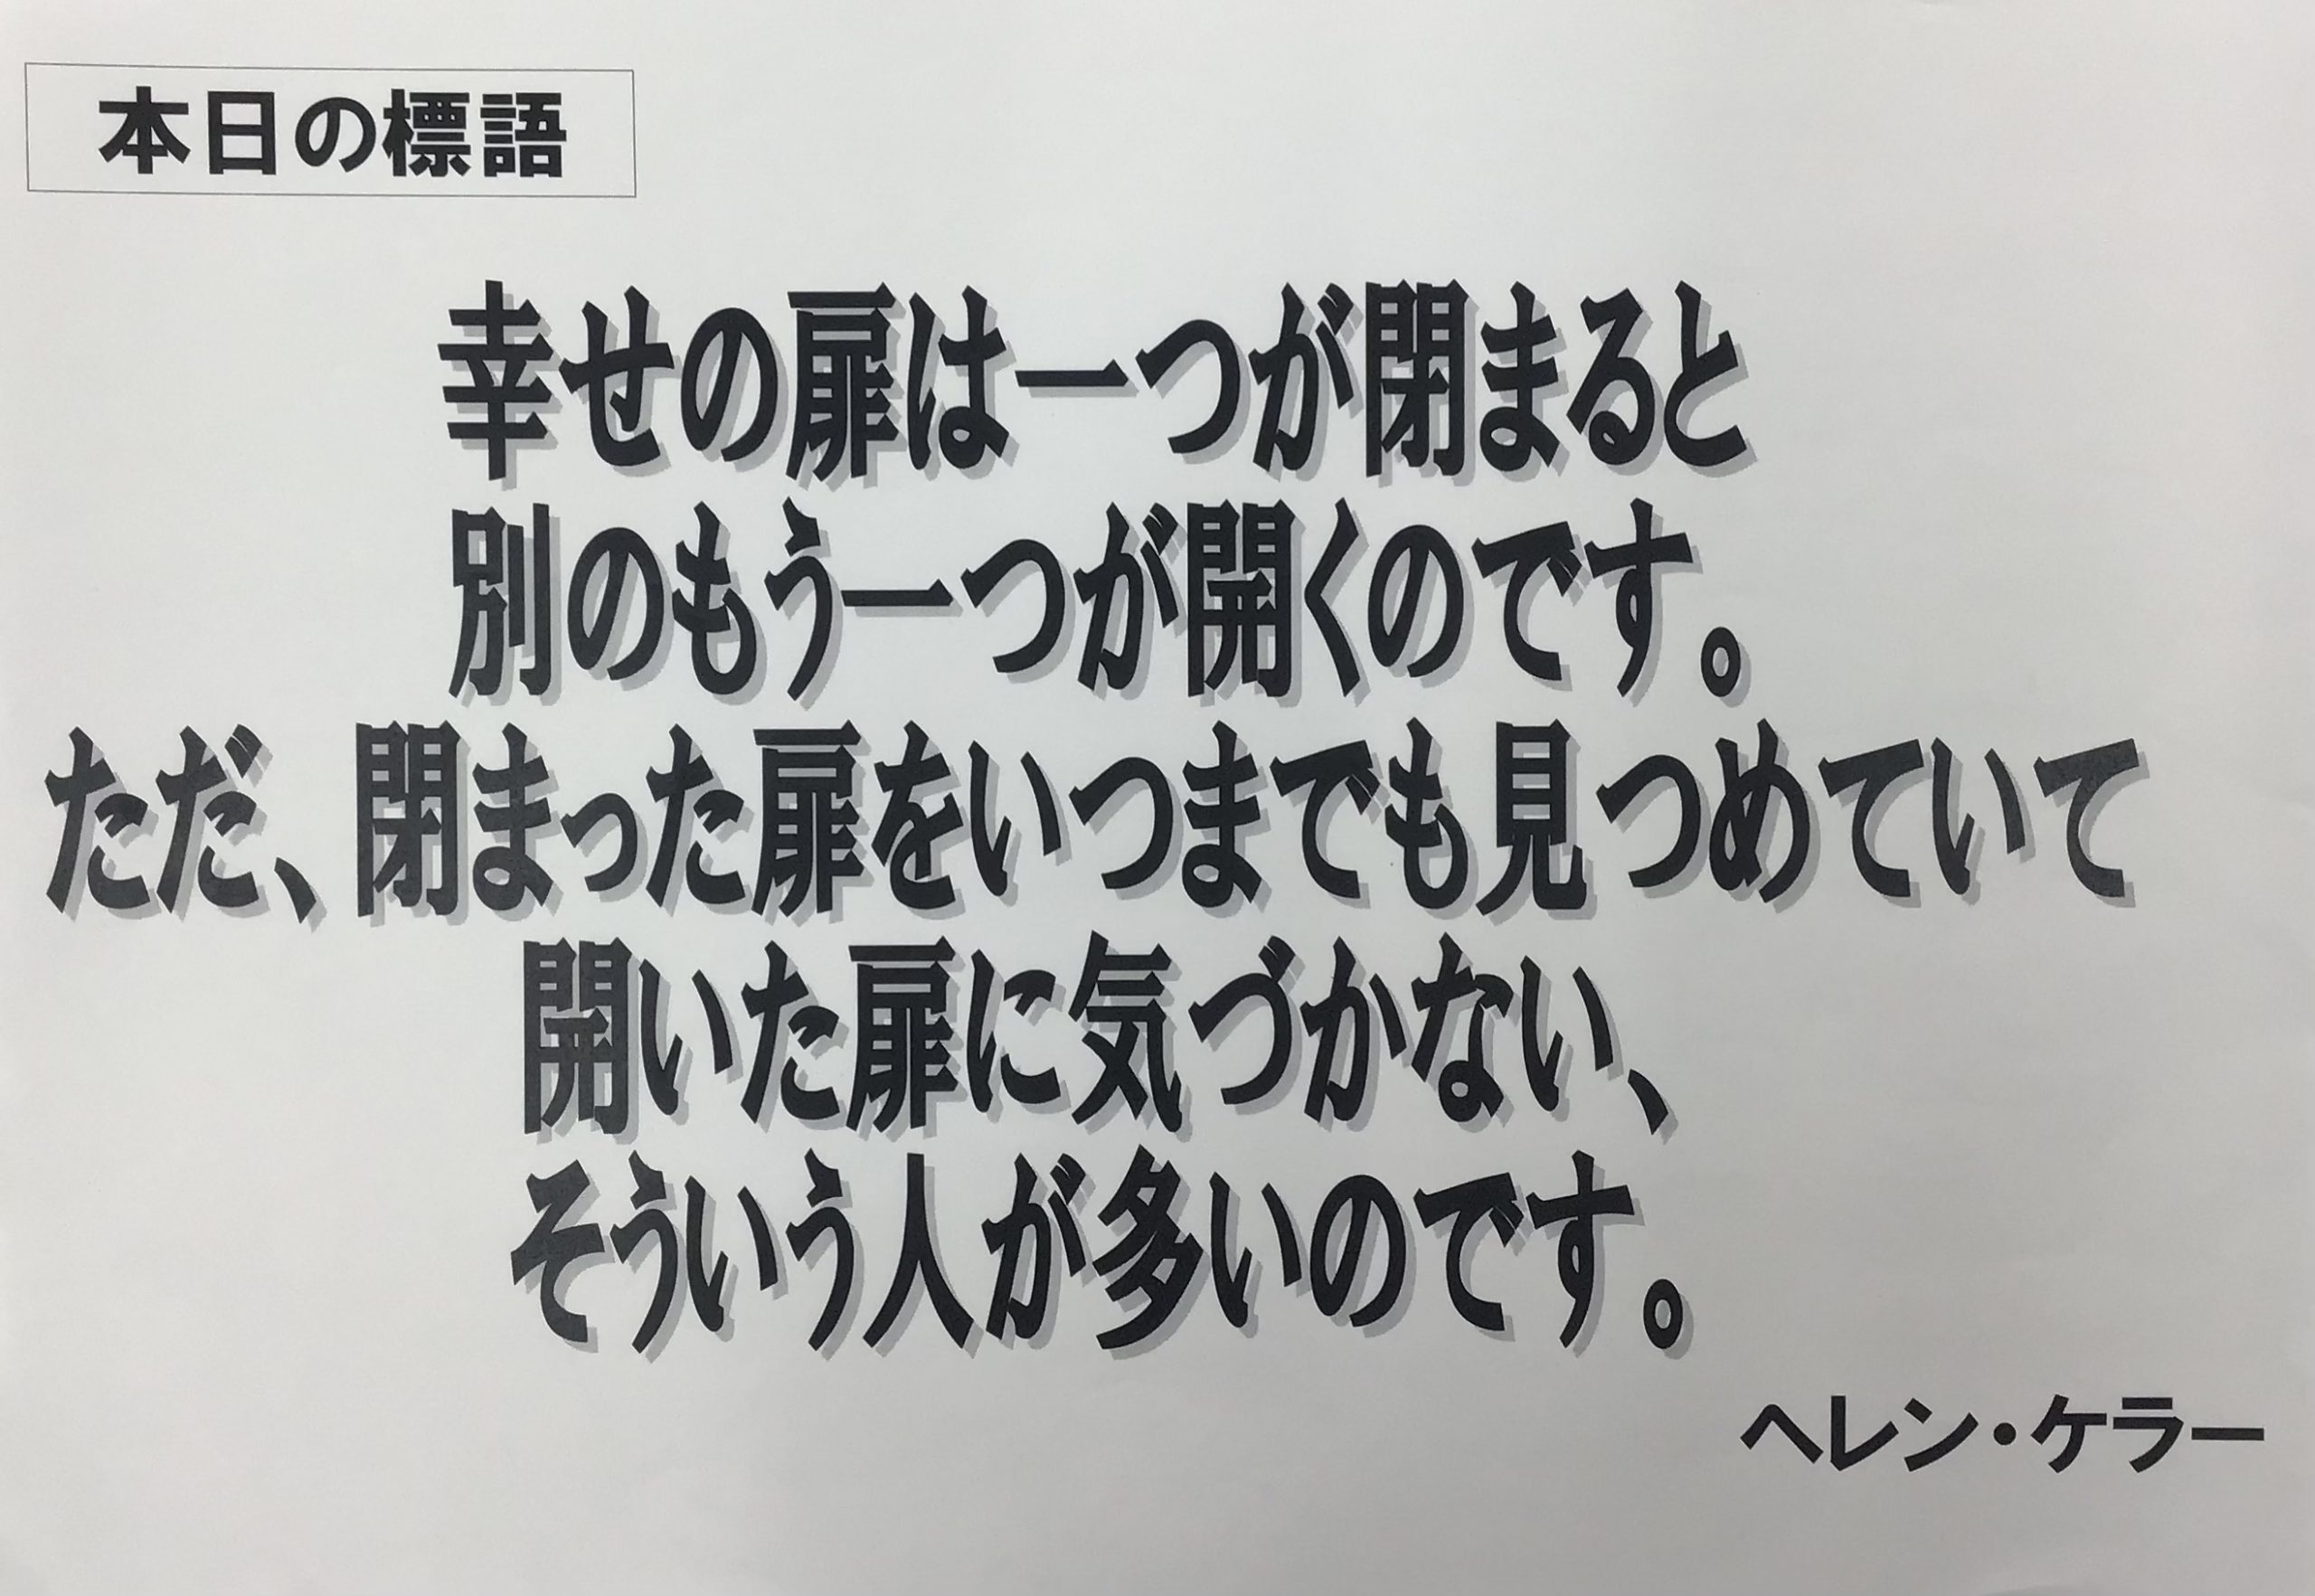 本日の標語
幸せの扉は一つが閉まると
別のもう一つが開くのです。
ただ、閉まった扉をいつまでも見つめていて
開いた扉に気づかない、
そういう人が多いのです。
ヘレン・ケラー